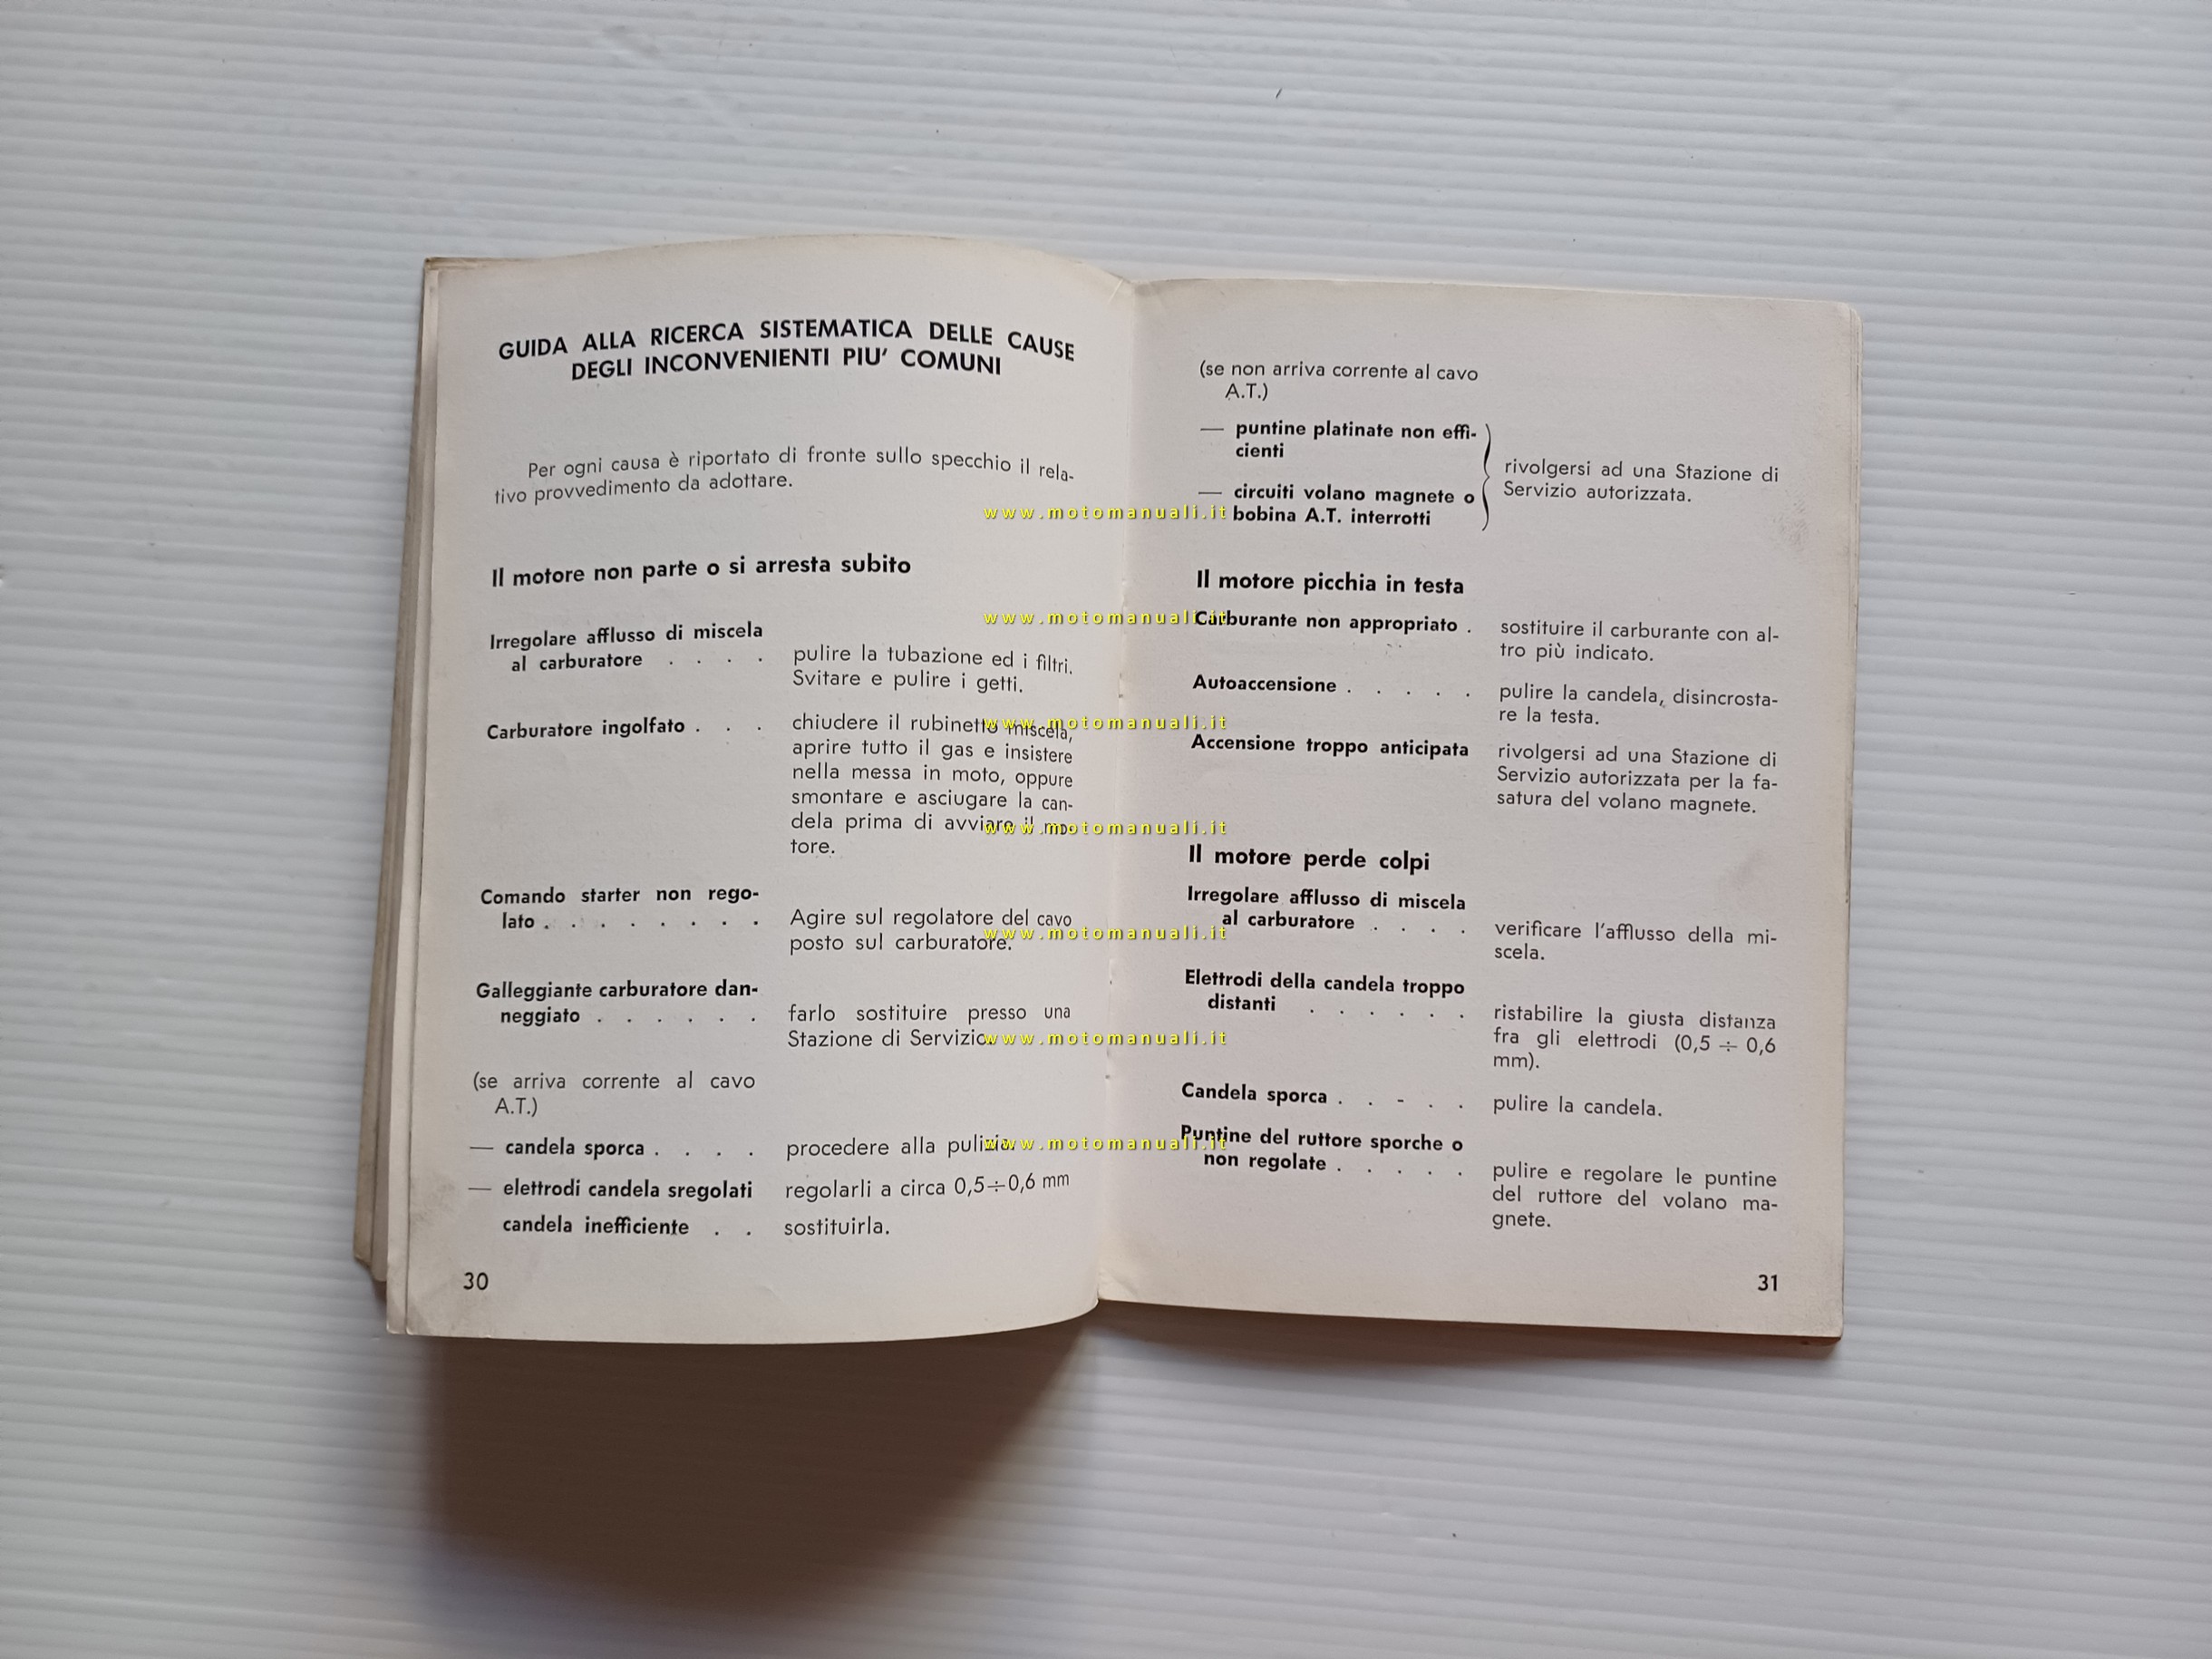 GUIDA ALLA RICERCA SISTEMATICA DELLE CAUSE
DEGLI INCONVENIENTI PIU' COMUNI
Per ogni causa è riportato di fronte sullo specchio il rela-
tivo provvedimento da adottare.
Il motore non parte o si arresta subito
Irregolare afflusso di miscela
al carburatore . . . . pulire la tubazione ed i filtri.
Svitare e pulire i getti.
Carburatore ingolfato . . . chiudere il rubinetto miscela,
aprire tutto il gas e insistere
nella messa in moto, oppure
smontare e asciugare la can-
dela prima di avviare il mo-
tore.
Comando starter non rego-
lato . . . . . . . . Agire sul regolatore del cavo
posto sul carburatore.
Galleggiante carburatore dan-
neggiato . . . . . . farlo sostituire presso una
Stazione di Servizio.
(se arriva corrente al cavo
A.T.)
— candela sporca . . . . procedere alla pulizia.
— elettrodi candela sregolati regolarli a circa 0,5÷0,6 mm
candela inefficiente . . sostituirla.
30
(se non arriva corrente al cavo
A.T.)
— puntine platinate non effi-
cienti
— circuiti volano magnete o
bobina A.T. interrotti
rivolgersi ad una Stazione di
Servizio autorizzata.
Il motore picchia in testa
Carburante non appropriato . sostituire il carburante con al-
tro più indicato.
Autoaccensione . . . . . pulire la candela, disincrosta-
re la testa.
Accensione troppo anticipata rivolgersi ad una Stazione di
Servizio autorizzata per la fa-
satura del volano magnete.
Il motore perde colpi
Irregolare afflusso di miscela
al carburatore . . . . verificare l'afflusso della mi-
scela.
Elettrodi della candela troppo
distanti . . . . . . ristabilire la giusta distanza
fra gli elettrodi (0,5 ÷ 0,6
mm).
Candela sporca . . - . . pulire la candela.
Puntine del ruttore sporche o
non regolate . . . . . pulire e regolare le puntine
del ruttore del volano ma-
gnete.
31
www.motomanuali.it
www.motomanuali.it
www.motomanuali.it
www.motomanuali.it
www.motomanuali.it
www.motomanuali.it
www.motomanuali.it